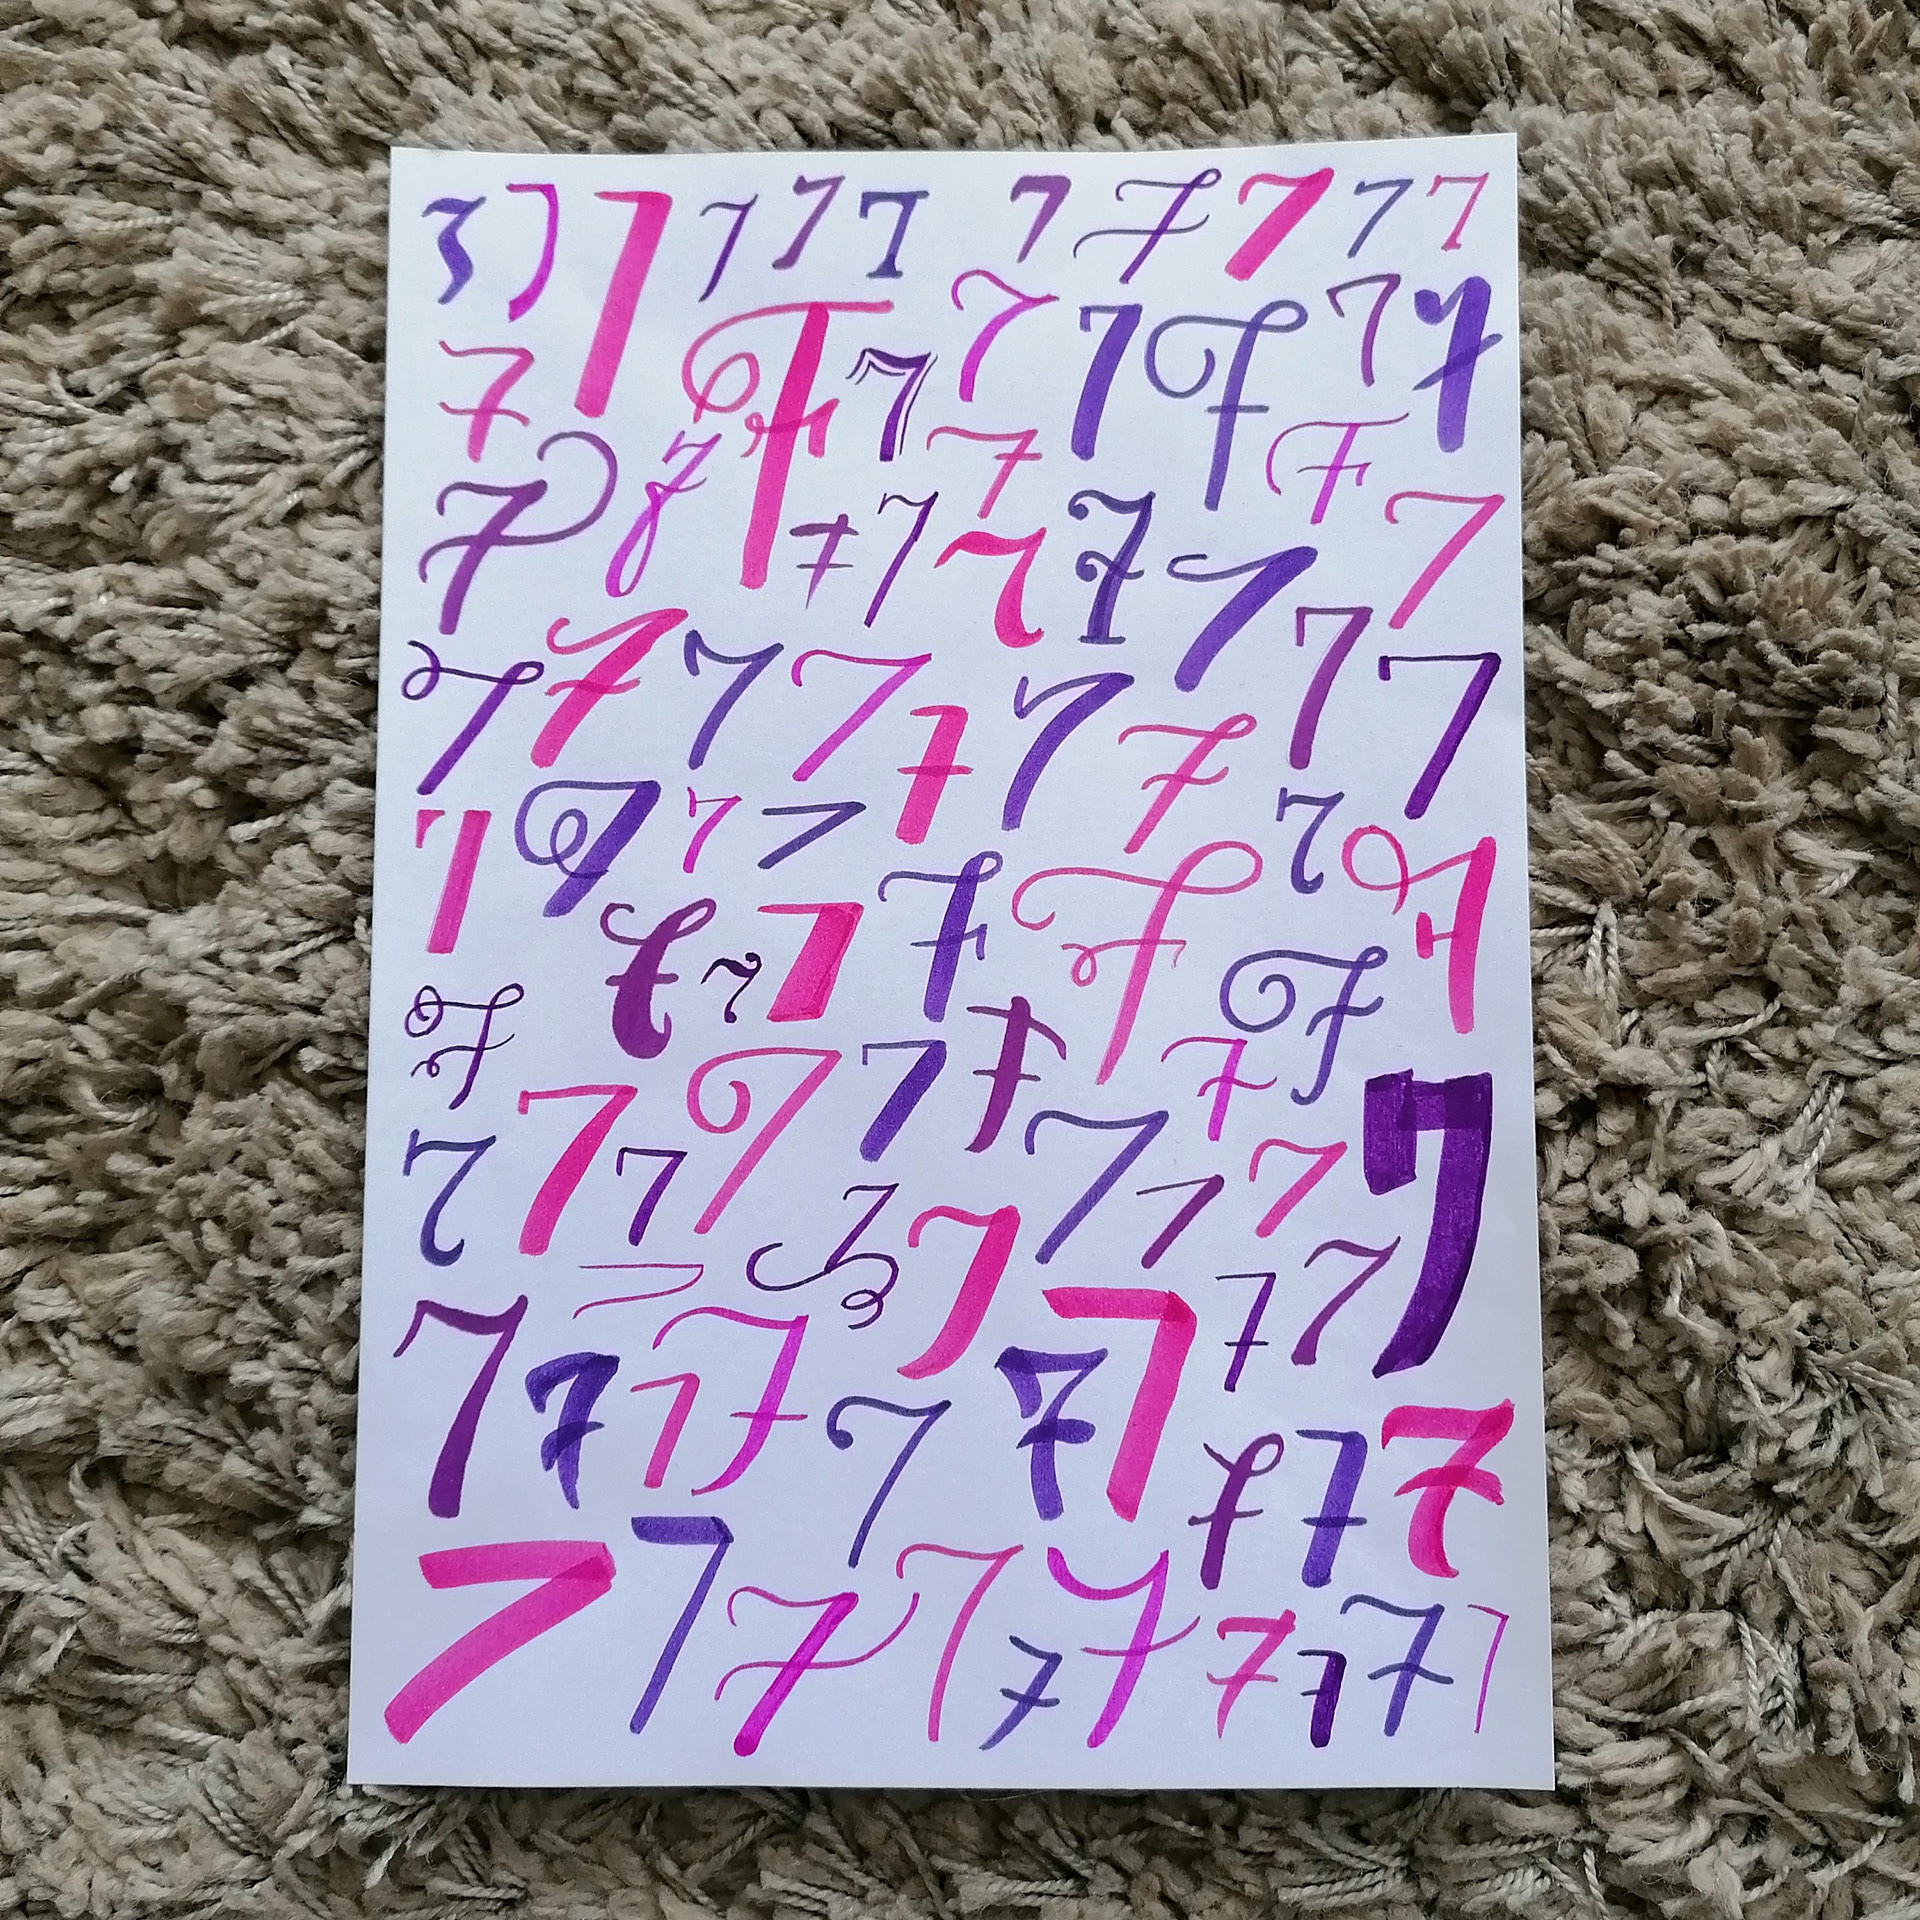 7 7 7 7 7 7 7 7 7 7 7
7 7 7 7 7 7 7 7
7 7 7 7 7 7 7 7 7 7
7 7 7 7 7 7 7 7 7
7 7 7 7 7 7 7 7
7 7 7 7 7 7 7
7 7 7 7 7 7 7 7 7
7 7 7 7 7
7 7 7 7 7 7 7 7 7 7
7 7 7 7 7 7 7 7 7 7